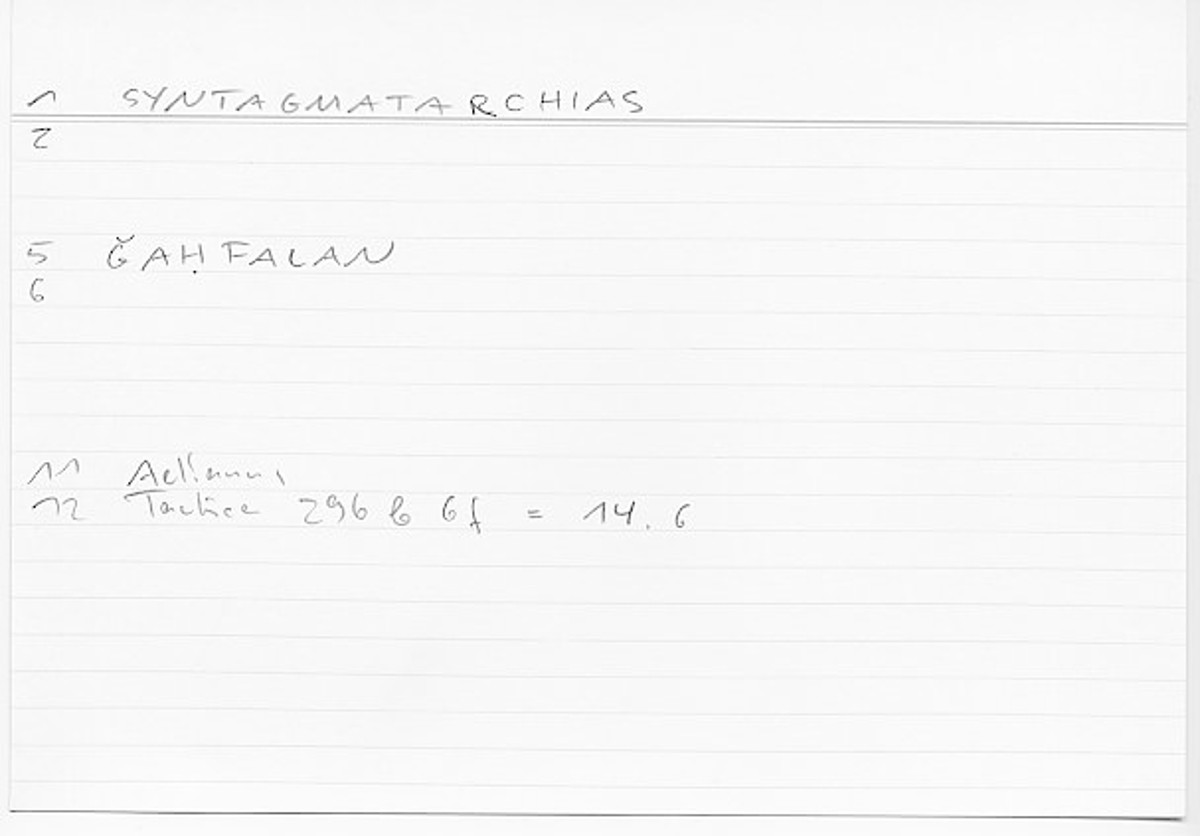 1 SYNTAGMATARCHIAS
2
5 ǦAḤFALAN
6
11 Aelianus
12 Tactica 296 b 6f = 14.6